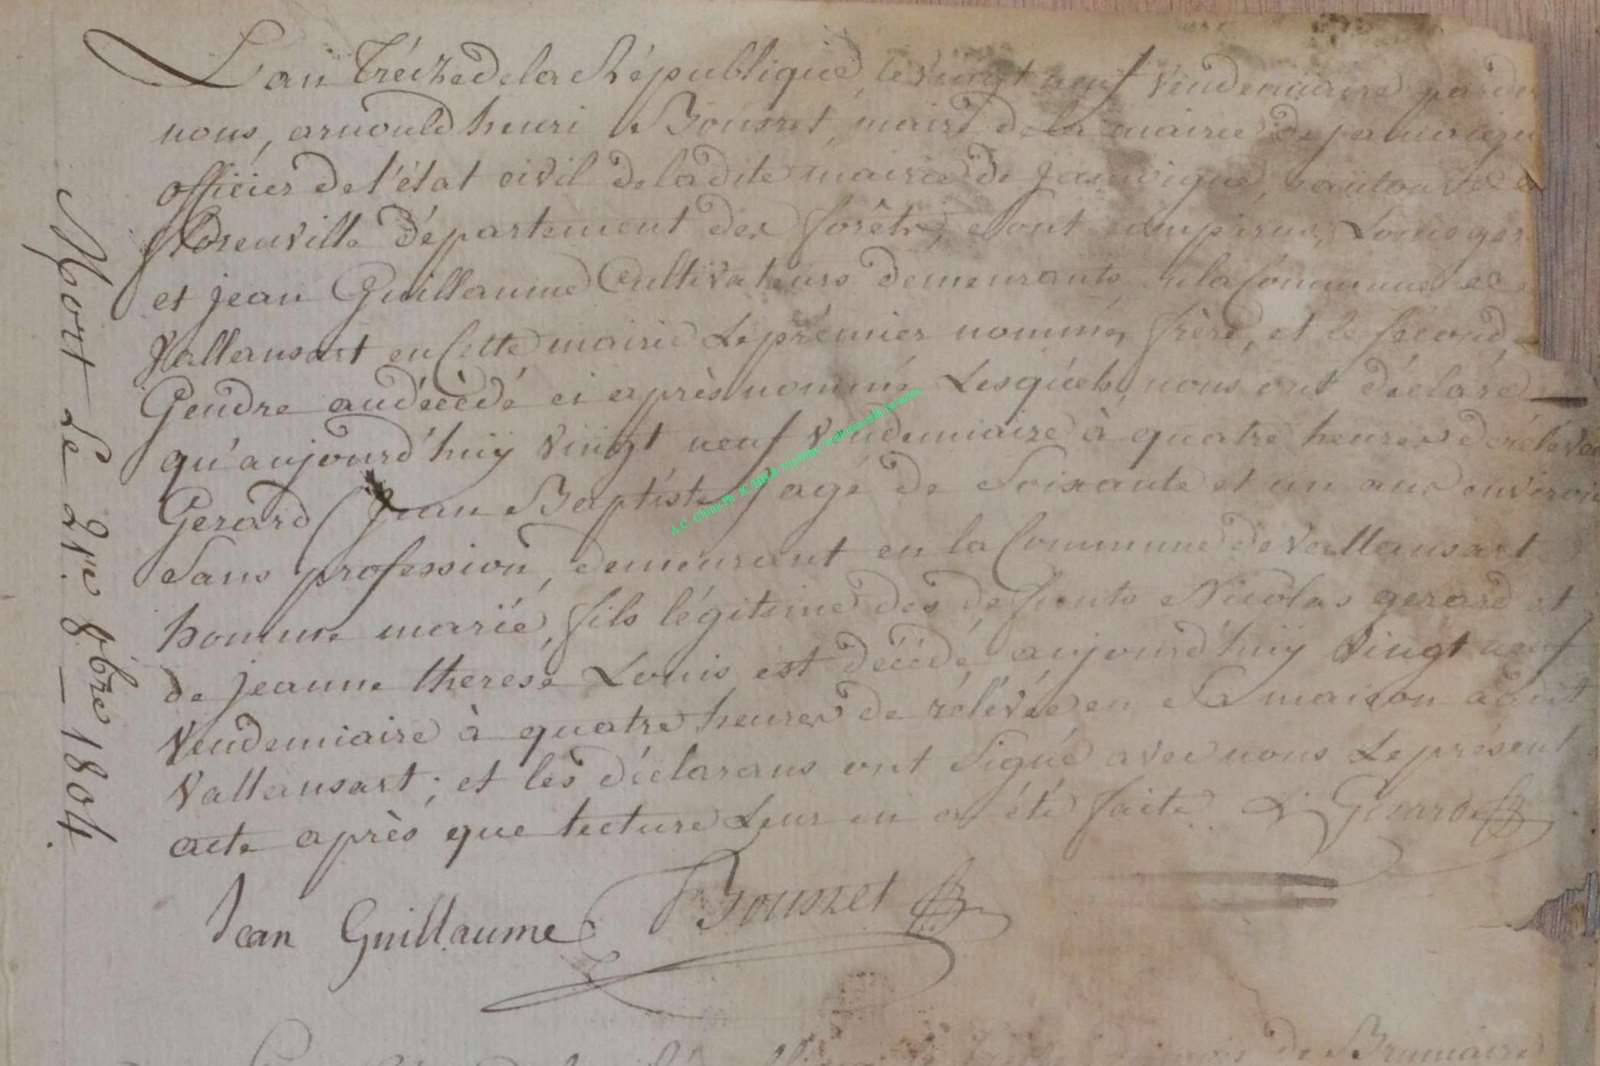 L'an Treize de la République, le vingt neuf Vendemiaire par de
nous, arnould henri Bouzet, maire de la mairie de jamoigne
officier de l'état civil de la dite mairie de Jamoigne, canton de
florenville Département des forêts, sont comparus, Louis ger
et jean Guillaume Cultivateurs demeurants en la Commune de
Vallansart en Cette mairie Le prémier nommé, frère, et le Second,
Gendre au décédé ci après nommé Lesquels nous ont déclaré
qu'aujourd'huy vingt neuf Vendemiaire à quatre heures de réleve
Gerard Jean Baptiste agé de Soixante et un ans environ
Sans profession, demeurant en la Commune de Vallansart
homme marié, fils légitime des défunts Nicolas gerard et
de jeanne therese Louis est décédé aujourd'huy vingt neuf
Vendemiaire à quatre heures de rélévée en Sa maison audit
Vallansart; et les déclarans ont Signé avec nous Le présent
acte après que lecture Leur en a été faite. L Gerard
Jean Guillaume Bouzet
Mort Le 21re 8bre 1804.
de Brumaire